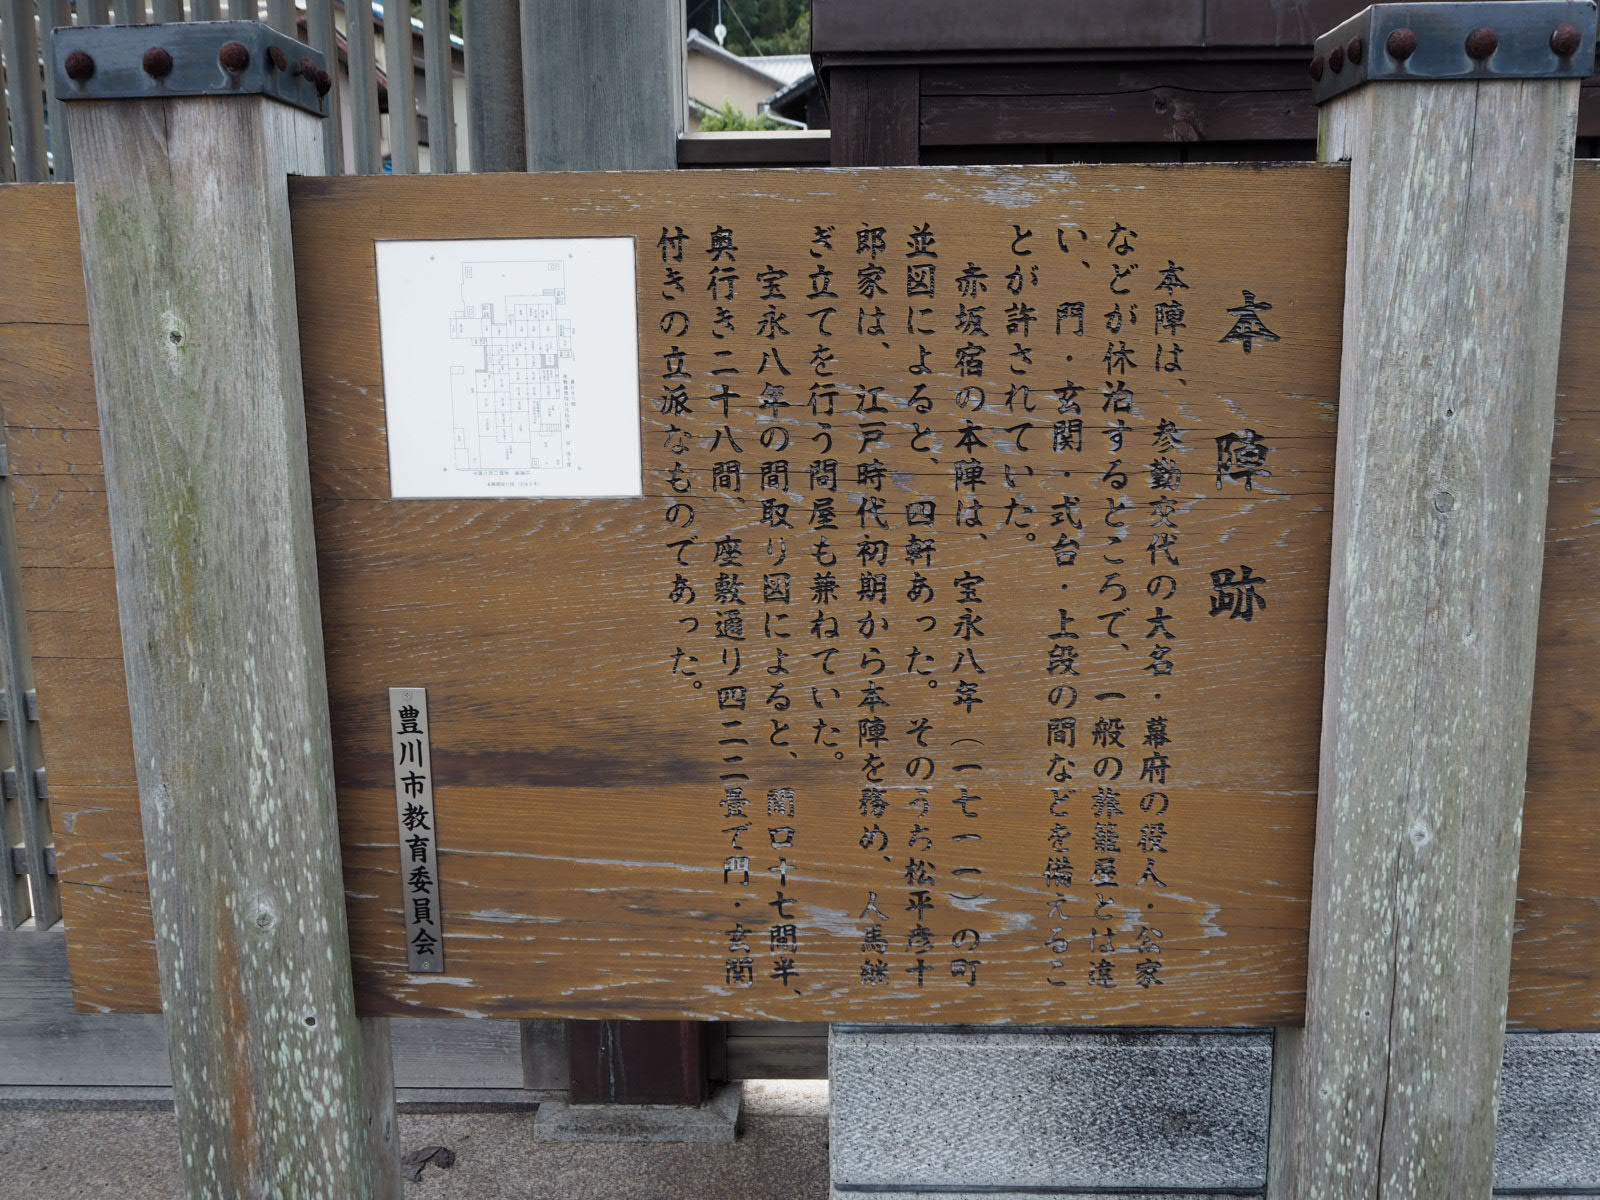 本陣跡
本陣は、参勤交代の大名・幕府の役人・公家
などが休泊するところで、一般の旅籠屋とは違
い、門・玄関・式台・上段の間などを備えるこ
とが許されていた。
赤坂宿の本陣は、宝永八年（一七一一）の町
並図によると、四軒あった。そのうち松平彦十
郎家は、江戸時代初期から本陣を務め、人馬継
ぎ立てを行う問屋も兼ねていた。
宝永八年の間取り図によると、間口十七間半、
奥行き二十八間、座敷通り四二二畳で門・玄関
付きの立派なものであった。
豊川市教育委員会